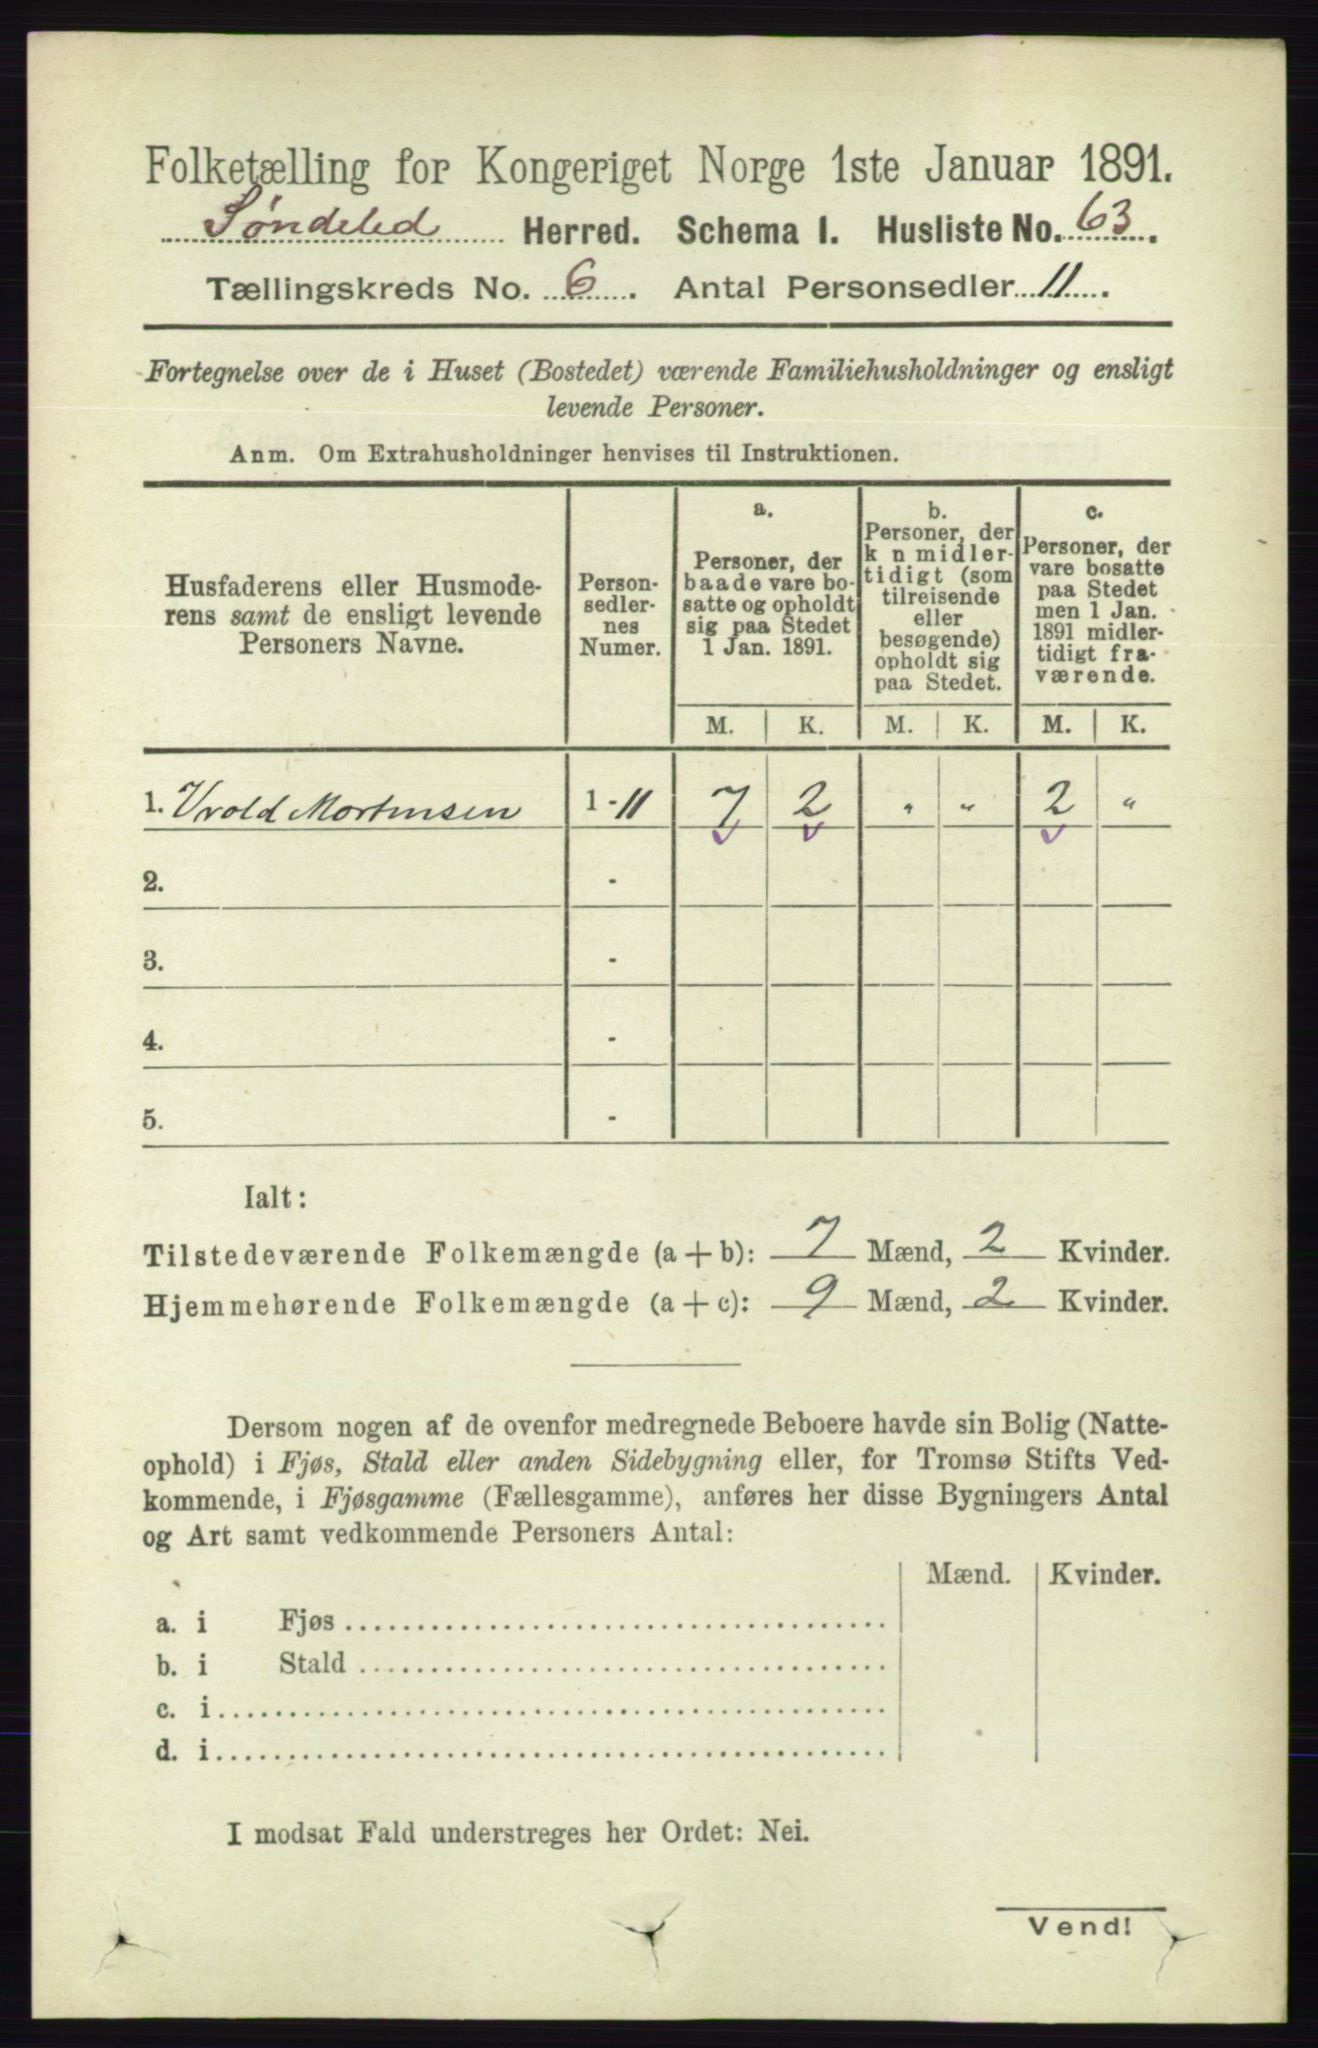 Folketælling for Kongeriget Norge 1ste Januar 1891.
Søndeled Herred. Schema I. Husliste No. 63.
Tællingskreds No. 6. Antal Personsedler 11.
Fortegnelse over de i Huset (Bostedet) værende Familiehusholdninger og ensligt
levende Personer.
Anm. Om Extrahusholdninger henvises til Instruktionen.
Husfaderens eller Husmode-
rens samt de ensligt levende
Personers Navne.
Person-
sedler-
nes
Numer.
a.
Personer, der
baade vare bo-
satte og opholdt
sig paa Stedet
1 Jan. 1891.
b.
Personer, der
k n midler-
tidigt (som
tilreisende
eller
besøgende)
opholdt sig
paa Stedet.
c.
Personer, der
vare bosatte
paa Stedet
men 1 Jan.
1891 midler-
tidigt fra-
værende.
M. K. M. K. M. K.
1. Vrold Mortensen 1-11 7 2 " " 2 "
2. -
3. -
4. -
5. -
Ialt:
Tilstedeværende Folkemængde (a+b): 7 Mænd, 2 Kvinder.
Hjemmehørende Folkemængde (a+c): 9 Mænd, 2 Kvinder.
Dersom nogen af de ovenfor medregnede Beboere havde sin Bolig (Natte-
ophold) i Fjøs, Stald eller anden Sidebygning eller, for Tromsø Stifts Ved-
kommende, i Fjøsgamme (Fællesgamme), anføres her disse Bygningers Antal
og Art samt vedkommende Personers Antal:
Mænd. Kvinder.
a. i Fjøs
b. i Stald
c. i
d. i
I modsat Fald understreges her Ordet: Nei.
Vend!